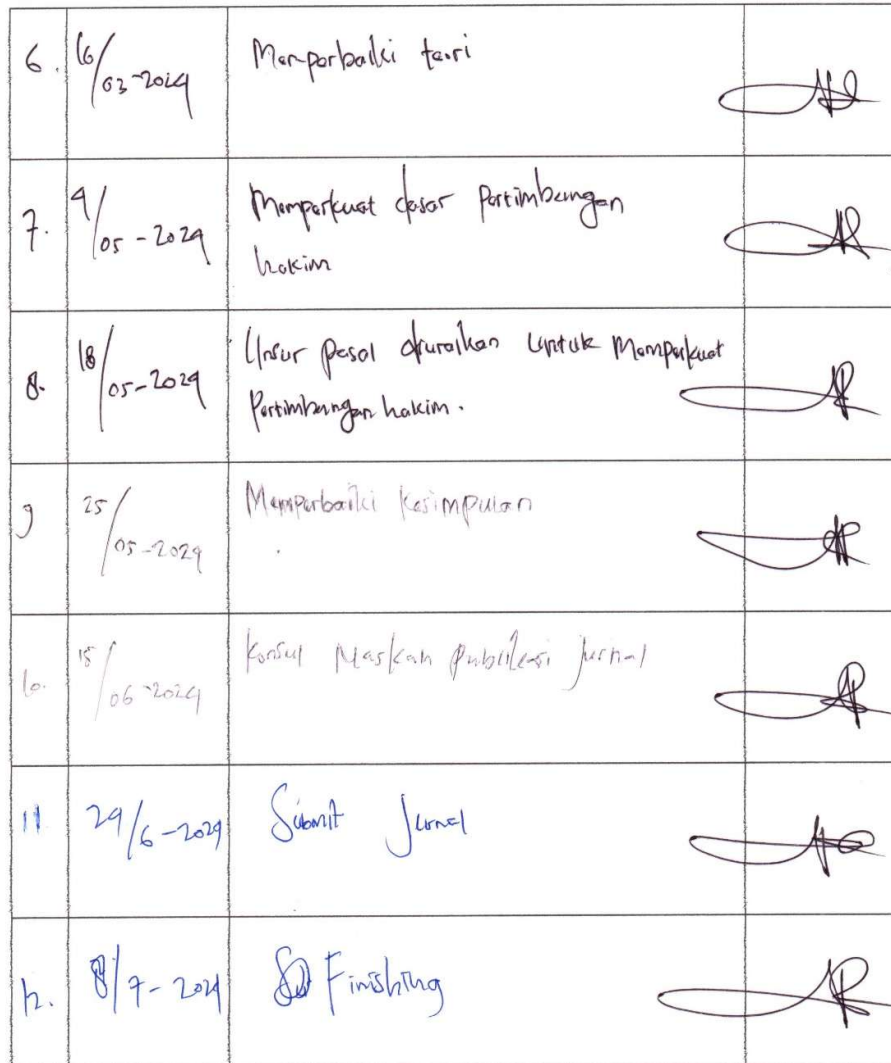 6. 16/03-2024 Memperbaiki teori
7. 4/05-2024 Memperkuat dasar Pertimbangan
hakim
8. 18/05-2024 Unsur pasal diuraikan untuk Memperkuat
Pertimbangan hakim.
9 25/05-2024 Memperbaiki Kesimpulan
10. 15/06-2024 Konsul Naskah Publikasi jurnal
11 29/6-2024 Submit Jurnal
12. 8/7-2024 Finishing